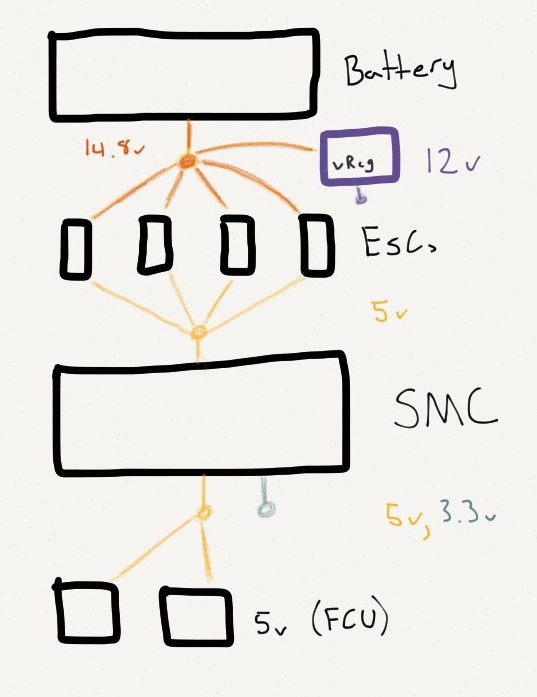 Battery
14.8v
vReg
12v
ESCs
5v
SMC
5v, 3.3v
5v (FCU)